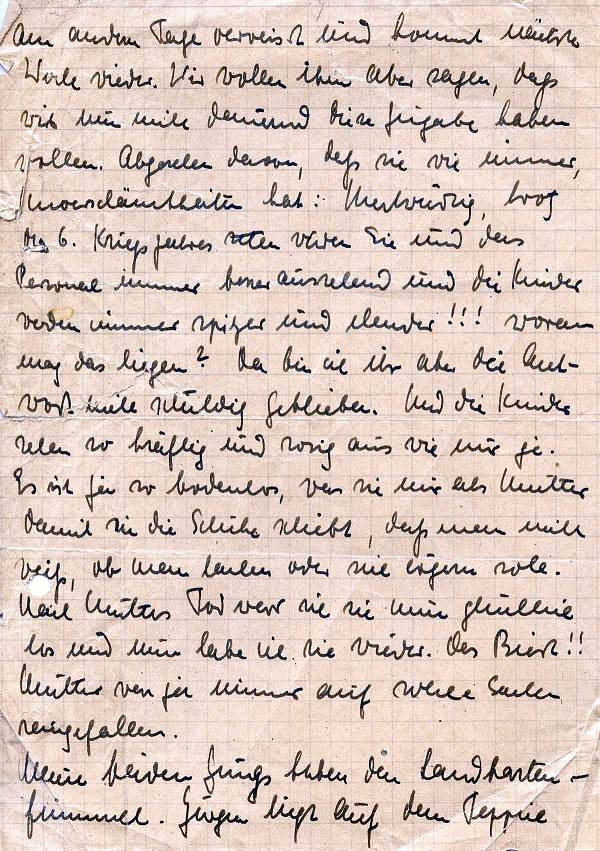 am andern Tage verreist und kommt nächste
Woche wieder. Wir wollen ihm aber sagen, dass
wir nun nicht dauernd diese haben
wollen. Abgesehen davon, daß sie wie immer,
Unverschämtheiten hat: Merkwürdig, trotz
des 6. Kriegsjahres sehen wären Sie und das
Personal immer besser aussehend und die Kinder
werden immer spitzer und elender!!! woran
mag das liegen? Da bin ich ihr aber die Ant-
wort nicht schuldig geblieben. Und die Kinder
sehen so kräftig und rosig aus wie nur je.
Es ist ja so bodenlos, was sie mir als Mutter
damit in die Schuhe schiebt, daß man nicht
weiß, ob man lachen oder sich ärgern soll.
Nach Mutters Tod war sie sie nun glücklich
los und nun habe ich sie wieder. Das Biest!!
Mutter war ja immer auf solche Sachen
reingefallen.
Meine beiden Jungs haben den Landkarten-
fimmel. Jürgen liegt auf dem Teppich